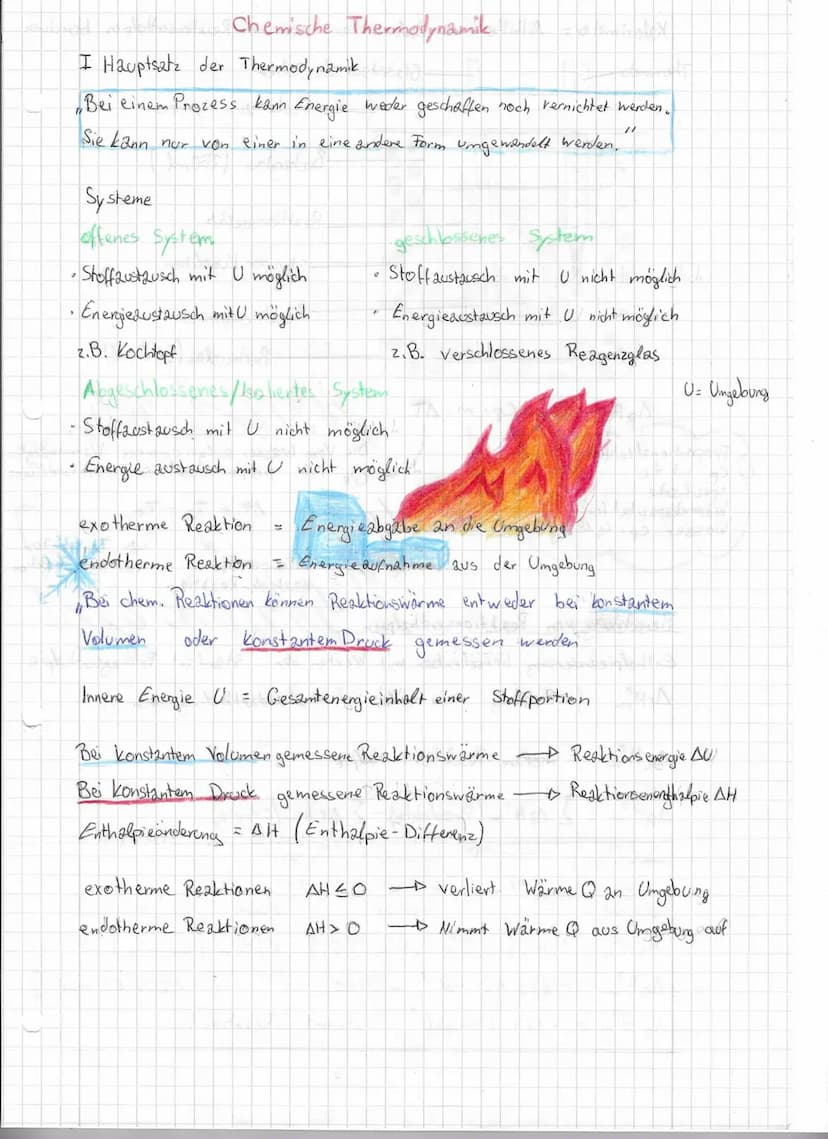 Chemische Thermodynamik
I Hauptsatz der Thermodynamik
„Bei einem Prozess kann Energie weder geschaffen noch vernichtet werden.
Sie kann nur von einer in eine andere Form umgewandelt werden."
Systeme
offenes System
· Stoffaustausch mit U möglich
· Energieaustausch mit U möglich
z.B. Kochtopf
geschlossenes System
· Stoffaustausch mit U nicht möglich
· Energieaustausch mit U nicht möglich
z.B. verschlossenes Reagenzglas
U= Umgebung
Abgeschlossenes/Isoliertes System
· Stoffaustausch mit U nicht möglich
· Energie austausch mit U nicht möglich
exotherme Reaktion = Energieabgabe an die Umgebung
endotherme Reaktion = Energieaufnahme aus der Umgebung
„Bei chem. Reaktionen können Reaktionswärme entweder bei konstantem
Volumen oder konstantem Druck gemessen werden
Innere Energie U = Gesamtenergieinhalt einer Stoffportion
Bei konstantem Volumen gemessene Reaktionswärme → Reaktionsenergie ΔU
Bei konstantem Druck gemessene Reaktionswärme → ΔH
Enthalpieänderung = ΔH (Enthalpie-Differenz)
exotherme Reaktionen ΔH ≤ 0 → verliert Wärme Q an Umgebung
endotherme Reaktionen ΔH > 0 → Nimmt Wärme Q aus Umgebung auf